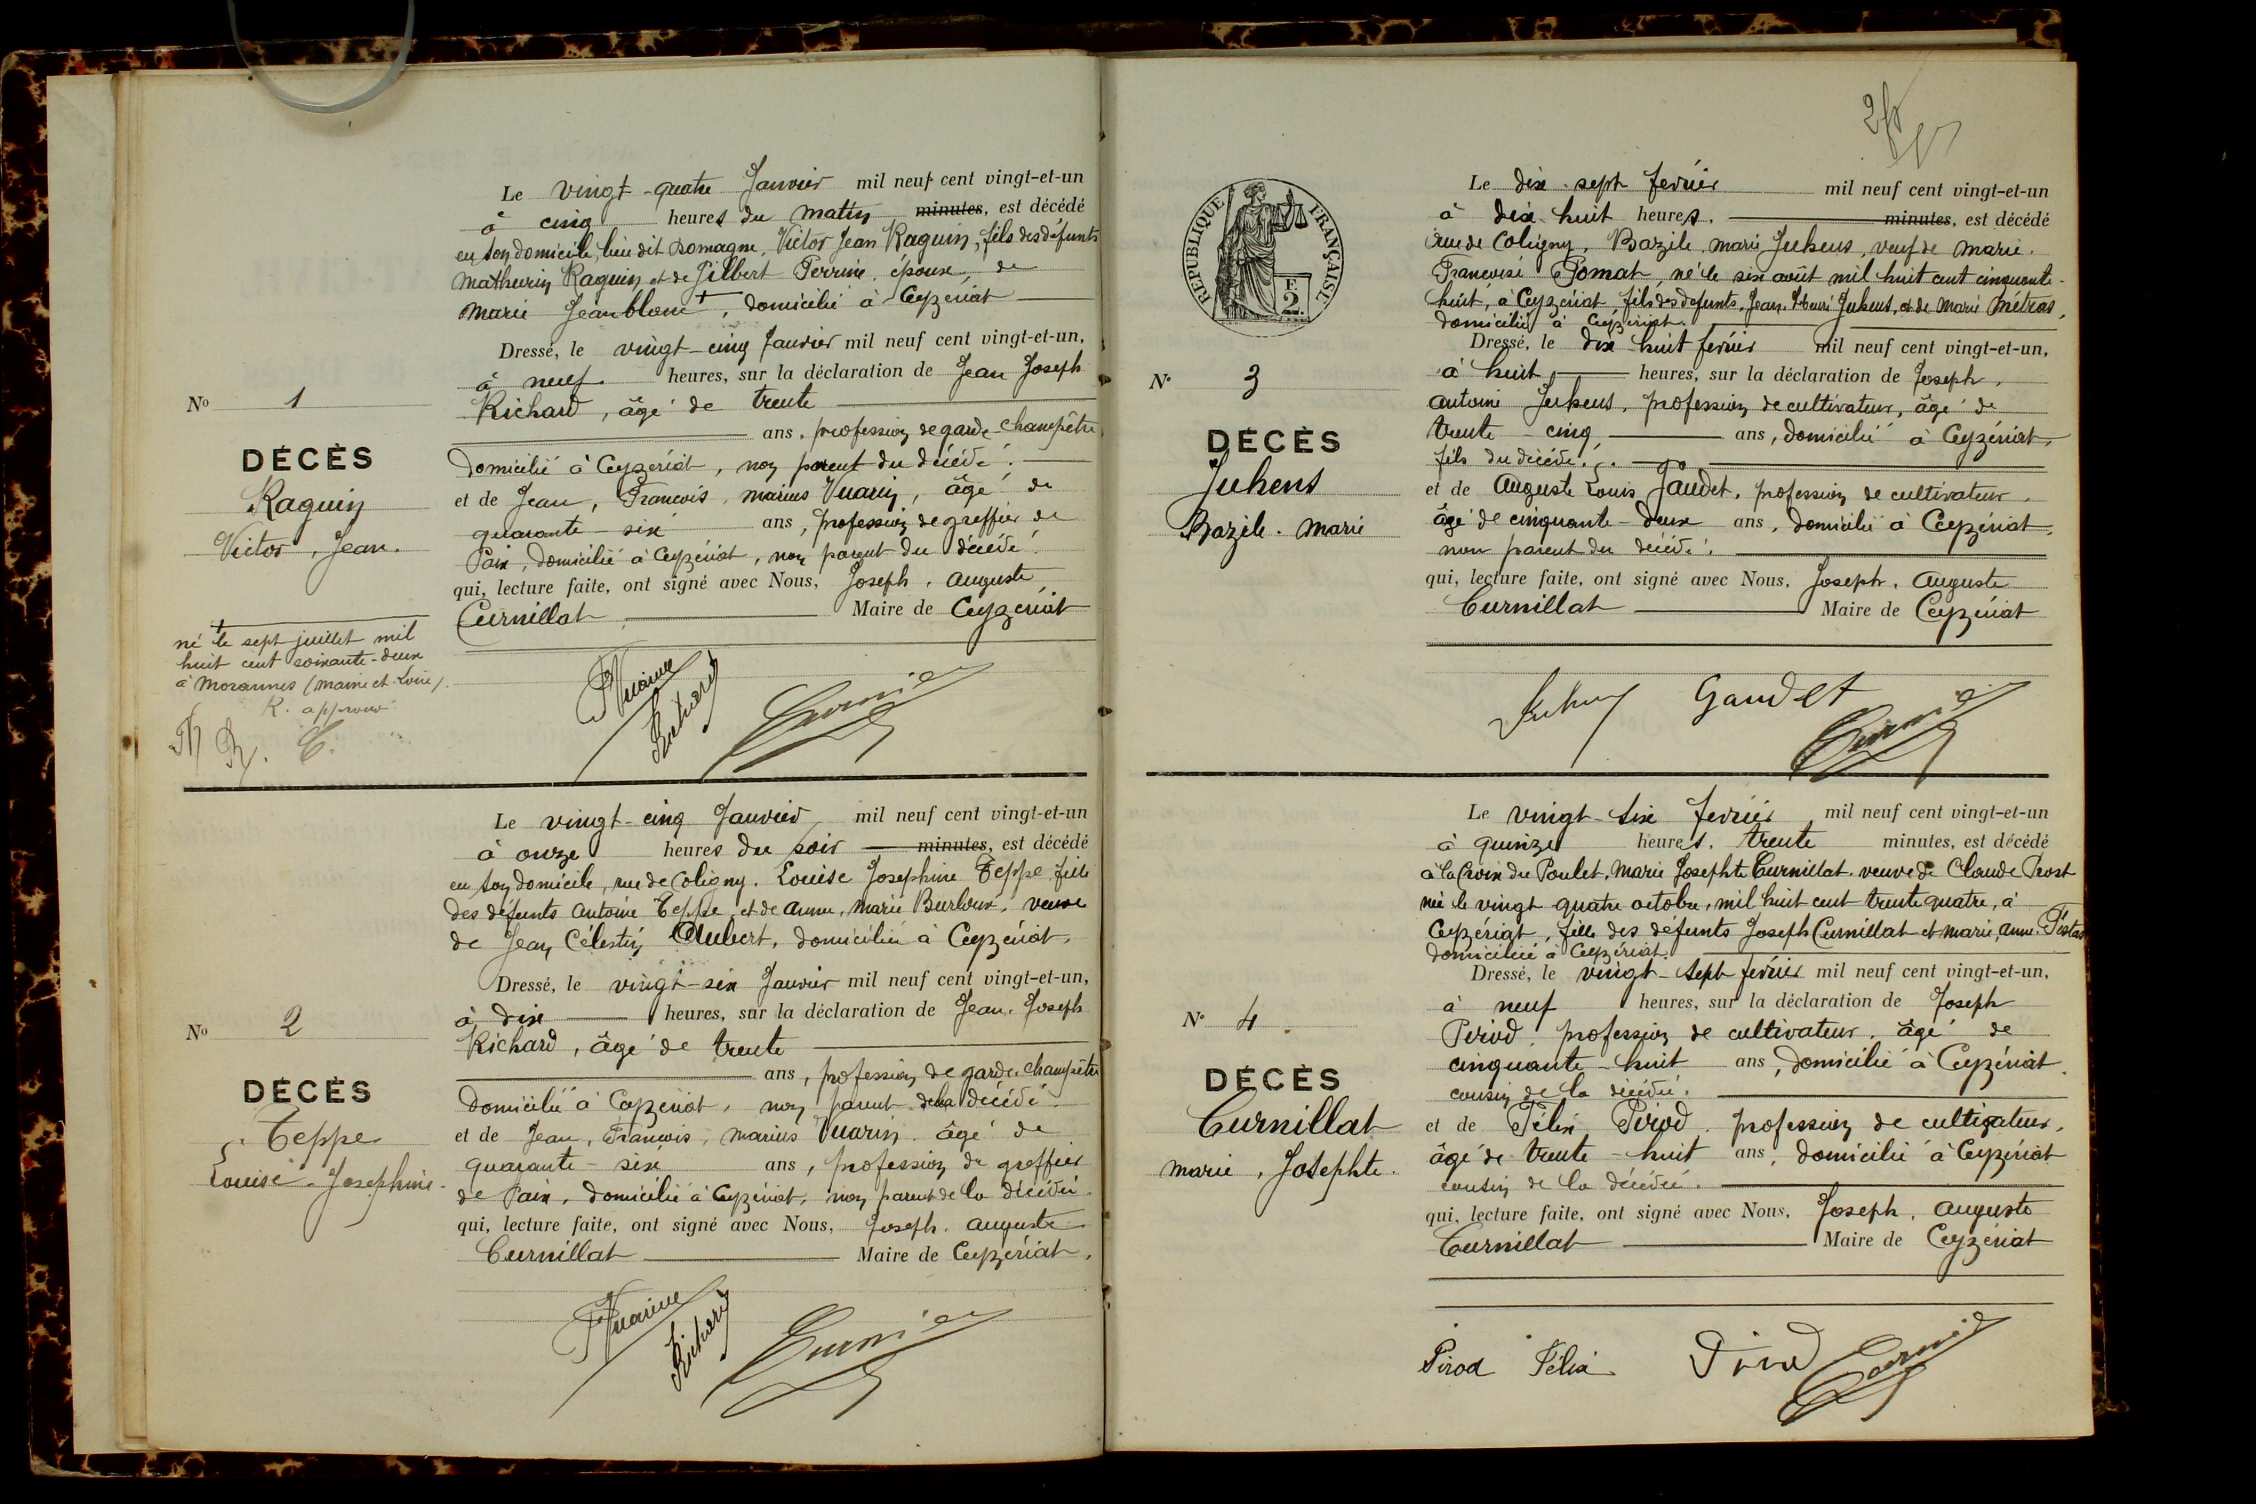 Le vingt-quatre Janvier mil neuf cent vingt-et-un
à cinq heures du matin minutes, est décédé
en son domicile, lieu dit Domagne, Victor Jean Raguin, fils des défunts
Mathurin Raguin et de Gilbert Perrine, époux, de
Marie Jeanblanc +, domicilié à Ceyzériat
Dressé, le vingt-cinq Janvier mil neuf cent vingt-et-un,
à neuf heures, sur la déclaration de Jean Joseph
Richard, âgé de trente
ans, profession de garde-champêtre
domicilié à Ceyzériat, non parent du décédé.
et de Jean, François, Marius Vuarin, âgé de
quarante-six ans, profession de greffier de
Paix, domicilié à Ceyzériat, non parent du décédé.
qui, lecture faite, ont signé avec Nous, Joseph, Auguste
Curnillat Maire de Ceyzériat
No 1
DÉCÈS
Raguin
Victor, Jean.
+
né le sept juillet mil
huit cent soixante-deux
à Morannes (Maine et Loire).
R. approuvé
R. C.
Richard
Le vingt-cinq Janvier mil neuf cent vingt-et-un
à onze heures du soir minutes, est décédé
en son domicile, rue de Coligny, Louise Josephine Teppe, fille
des défunts Antoine Teppe, et de Anne, Marie Burloux, veuve
de Jean Célestin Aubert, domiciliée à Ceyzériat.
Dressé, le vingt-six Janvier mil neuf cent vingt-et-un,
à dix heures, sur la déclaration de Jean, Joseph
Richard, âgé de trente
ans, profession de garde champêtre
domicilié à Ceyzériat, non parent de la décédé.
et de Jean, François, Marius Vuarin, âgé de
quarante-six ans, profession de greffier
de Paix, domicilié à Ceyzériat, non parent de la décédée.
qui, lecture faite, ont signé avec Nous, Joseph, Auguste
Curnillat Maire de Ceyzériat,
No 2
DÉCÈS
Teppe
Louise-Josephine.
Richard
RÉPUBLIQUE FRANÇAISE
F.
2.
Le dix-sept fevrier mil neuf cent vingt-et-un
à dix-huit heures. minutes, est décédé
rue de Coligny, Bazile, Marie Juhens, veuf de Marie.
Françoise Pomat, né le six août mil huit cent cinquante-
huit, à Ceyzériat, fils des defunts, Jean, Henri Juhens, et de Marie Métras,
domicilié à Ceyzériat.
Dressé, le dix-huit fevrier mil neuf cent vingt-et-un,
à huit heures, sur la déclaration de Joseph,
Antoine Juhens, profession de cultivateur, âgé de
trente-cinq ans, domicilié à Ceyzériat,
fils du décédé.
et de Auguste Louis Gaudet, profession de cultivateur.
âgé de cinquante-deux ans, domicilié à Ceyzériat,
non parent du décédé.
qui, lecture faite, ont signé avec Nous, Joseph, Auguste
Curnillat Maire de Ceyzériat
No 3
DÉCÈS
Juhens
Bazile. Marie
Gaudet
Le vingt-six fevrier mil neuf cent vingt-et-un
à quinze heures. trente minutes, est décédé
à la Croix du Poulet, Marie Josephte Curnillat, veuve de Claude Prost
née le vingt quatre octobre, mil huit cent trente quatre, à
Ceyzériat, fille des défunts Joseph Curnillat et Marie, Anne
domiciliée à Ceyzériat.
Dressé, le vingt-sept fevrier mil neuf cent vingt-et-un,
à neuf heures, sur la déclaration de Joseph
Pirod, profession de cultivateur, âgé de
cinquante-huit ans, domicilié à Ceyzériat.
cousin de la décédée.
et de Félix Pirod, profession de cultivateur,
âgé de trente-huit ans, domicilié à Ceyzériat
cousin de la décédée.
qui, lecture faite, ont signé avec Nous, Joseph, Auguste
Curnillat Maire de Ceyzériat
No 4
DÉCÈS
Curnillat
Marie, Josephte.
Pirod Félix Pirod